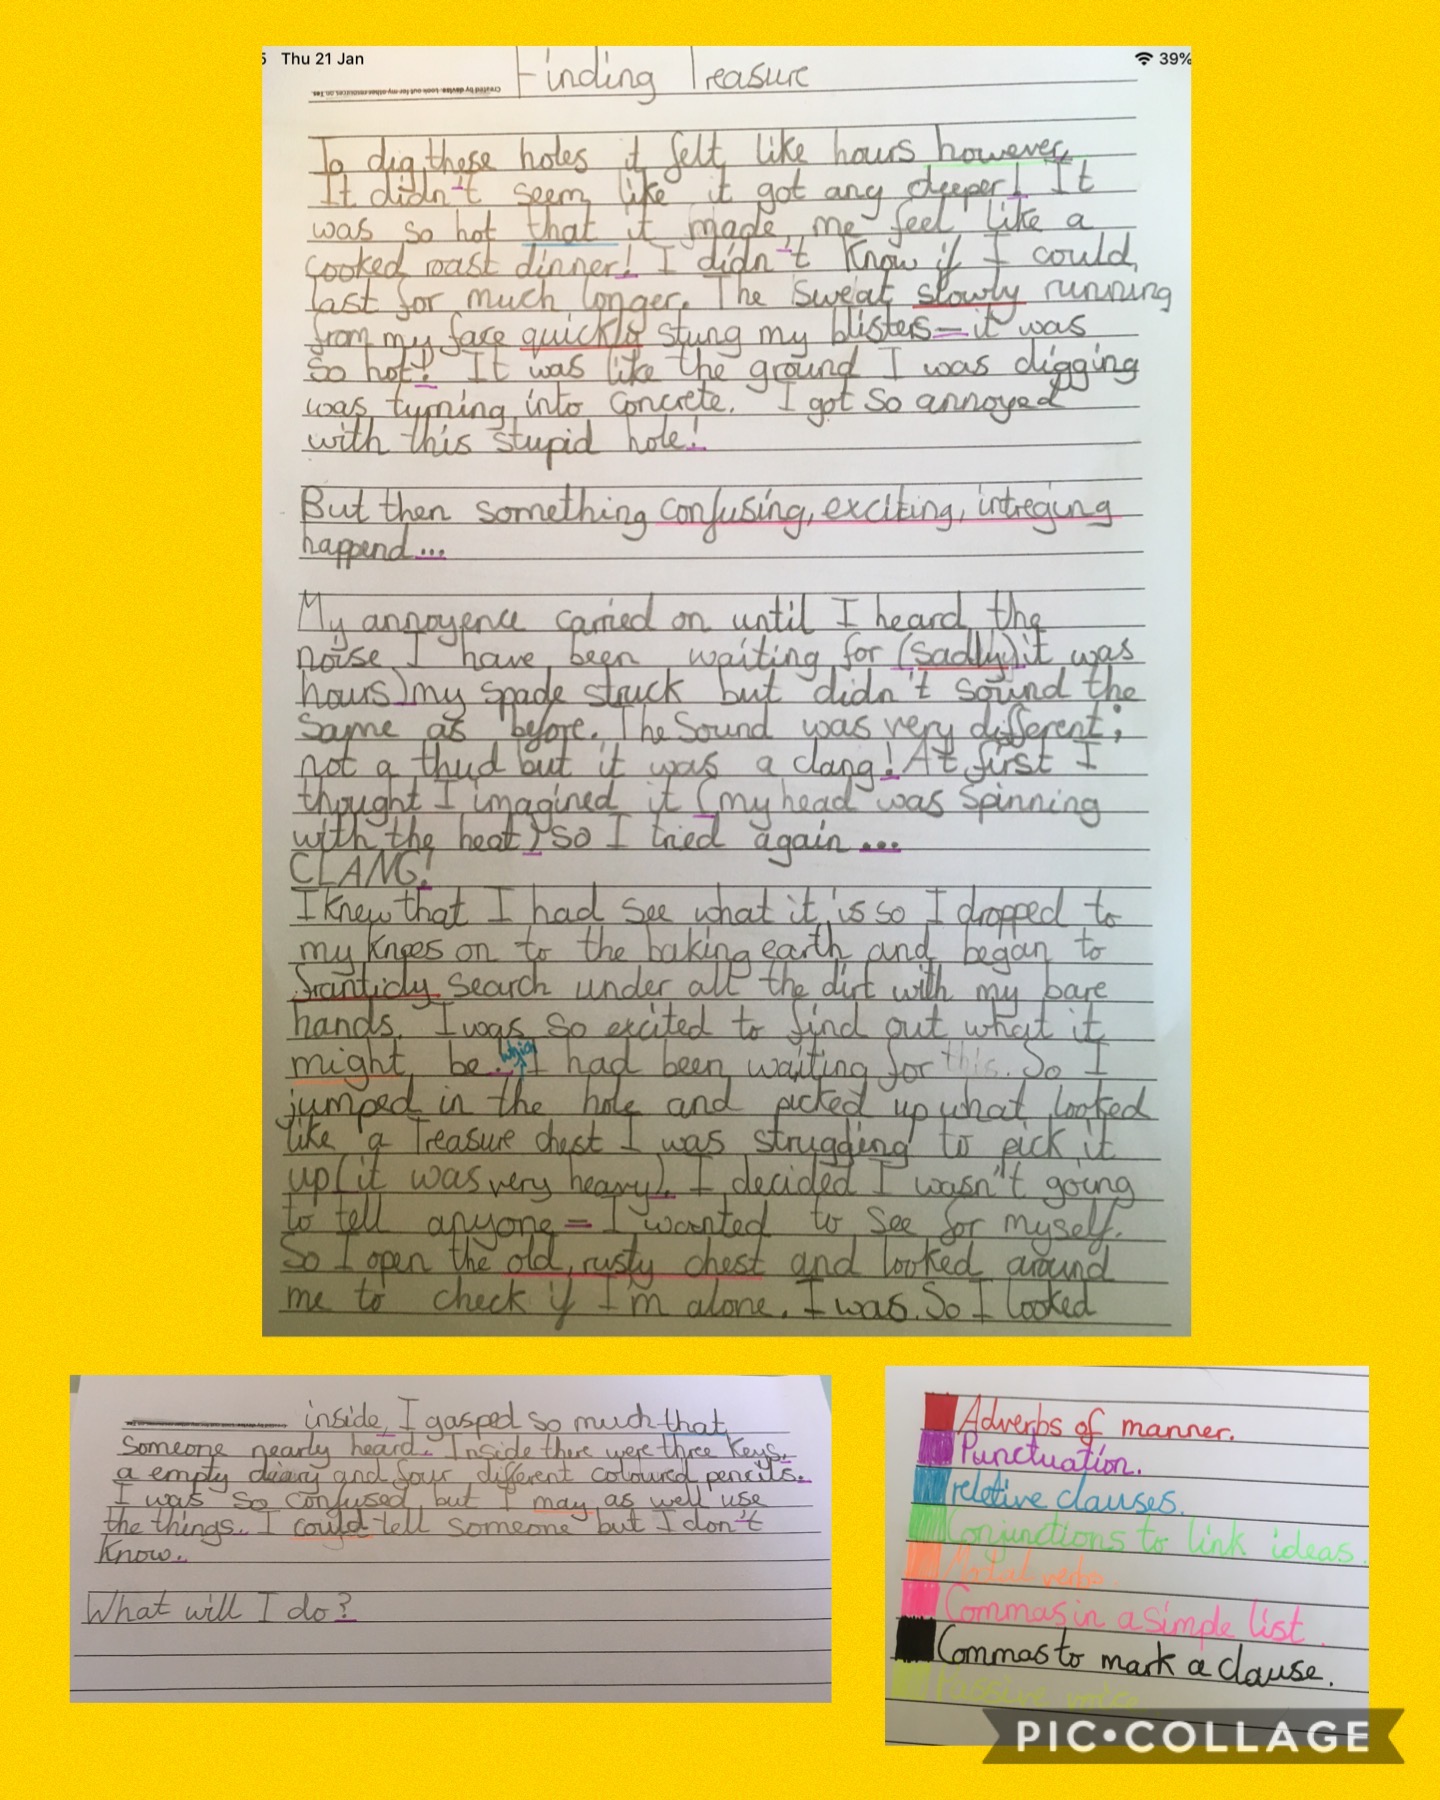 Thu 21 Jan
39%
Finding Treasure
To dig these holes it felt like hours however,
It didn't seem like it got any deeper! It
was so hot that it made me feel like a
cooked roast dinner! I didn't know if I could
last for much longer. The sweat slowly running
from my face quickly stung my blisters – it was
so hot! It was like the ground I was digging
was turning into concrete. I got so annoyed
with this stupid hole!
But then something confusing, exciting, intreging
happend...
My annoyence carried on until I heard the
noise I have been waiting for (sadly) it was
hours) my spade struck but didn't sound the
same as before. The Sound was very different;
not a thud but it was a clang! At first I
thought I imagined it (my head was spinning
with the heat) so I tried again ...
CLANG!
I knew that I had see what it is so I dropped to
my knees on to the baking earth and began to
franticly search under all the dirt with my bare
hands. I was so excited to find out what it
might be. which I had been waiting for this. So I
jumped in the hole and picked up what looked
like a Treasure chest I was struggling to pick it
up (it was very heavy). I decided I wasn't going
to tell anyone – I wanted to see for myself.
So I open the old, rusty chest and looked around
me to check if I'm alone. I was. So I looked
inside, I gasped so much that
someone nearly heard. Inside there were three keys,
a empty diary and four different coloured pencils.
I was so confused but I may as well use
the things. I could tell someone but I don't
know.
What will I do?
Adverbs of manner.
Punctuation.
reletive clauses.
Conjunctions to link ideas.
verbs.
Commas in a simple list.
Commas to mark a clause.
Passive voice
PIC•COLLAGE